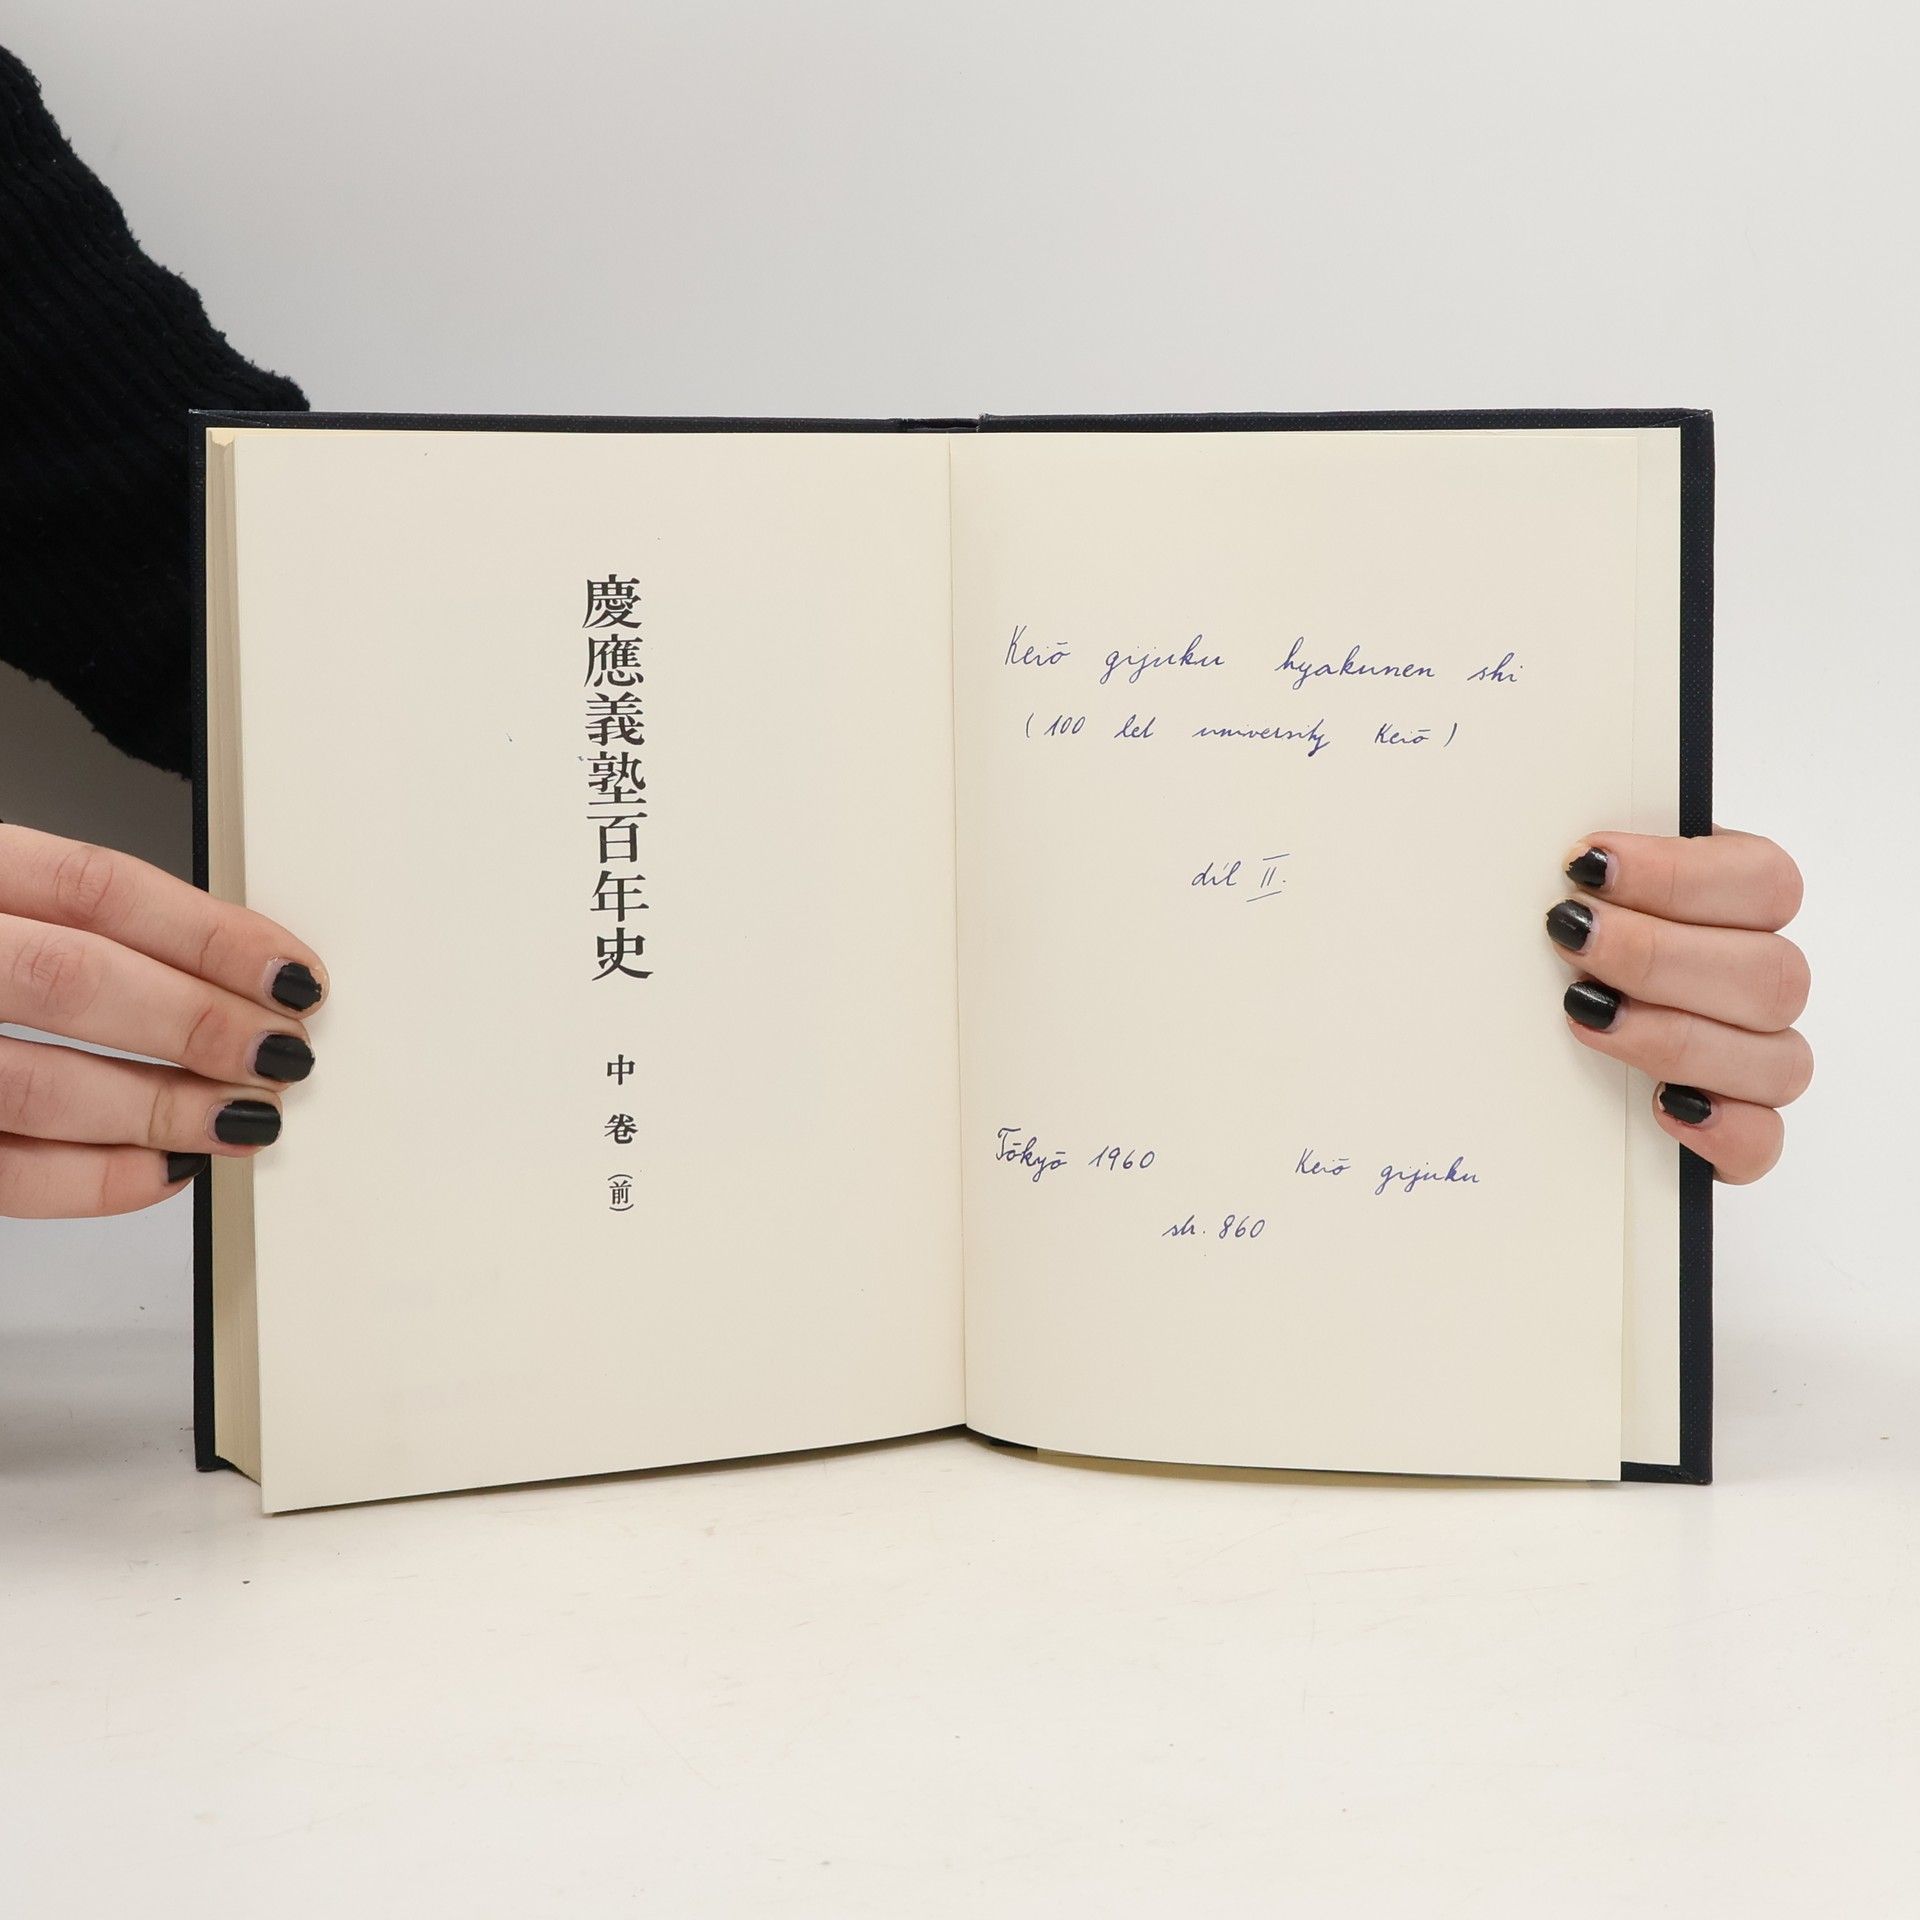 慶應義塾百年史
中卷（前）
Keiō gijuku hyakunen shi
(100 let university Keiō)
díl II.
Tōkyō 1960 Keiō gijuku
str. 860